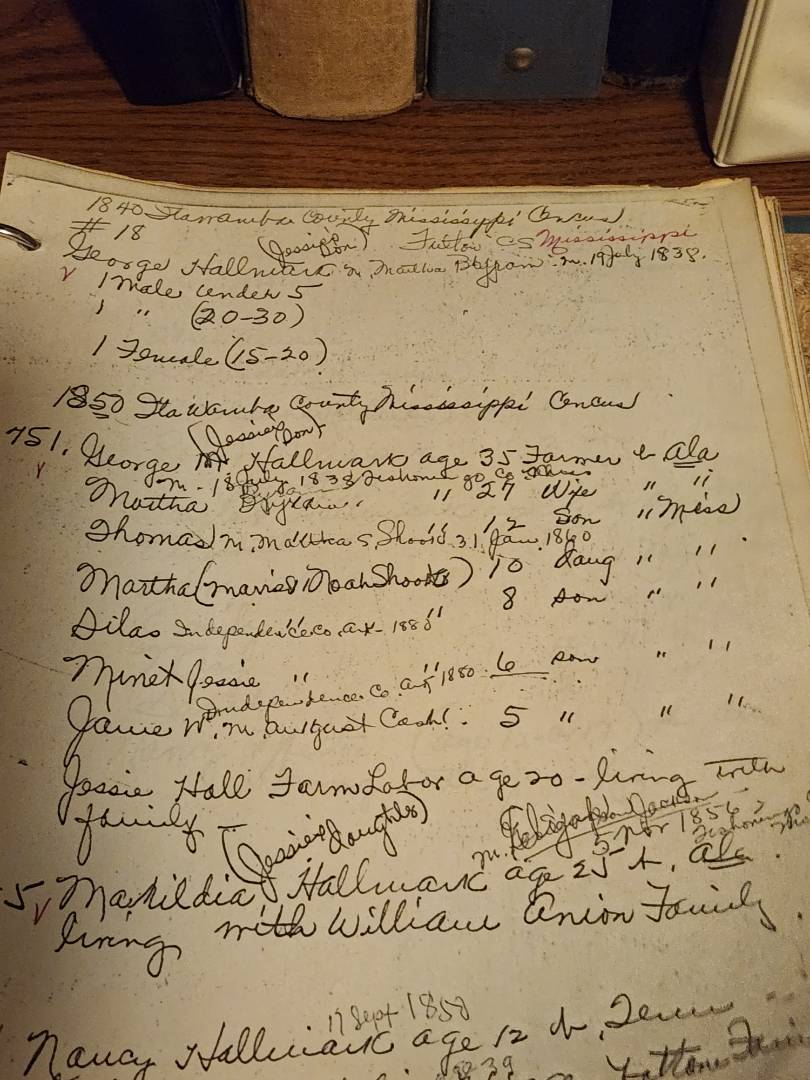 1840 Itawamba County Mississippi Cencus
# 18
(Jessie's Son) Fulton CS Mississippi
George Hallmark m. Martha Bynam. m. 19 July 1838.
v 1 Male under 5
1 " (20-30)
1 Female (15-20)
1850 Itawamba County Mississippi Cencus
(Jessie's Son)
751. George Hallmark age 35 Farmer b Ala
v m - 18 July 1838 Tishomingo Co
Martha " 27 Wife " "
Thomas " 12 Son " Miss
m. S. Shook 31. Jan. 1860
Martha (married Noah Shook) 10 daug " "
Silas Independence co. Ark - 1880 " 8 son " "
Minet Jessie " " 6 son " "
Independence Co. Ark 1880
W. m. August Cash. 5 " " "
Jessie Hall Farm Labor age 20 - living with
family -
(Jessie's daughter) m. Jackson
5 Mar 1856 Tishomingo
5 v Matildia Hallmark age 25 b. Ala.
living with William Anion Family.
17 Sept 1850
Nancy Hallmark age 12 b. Tenn
39